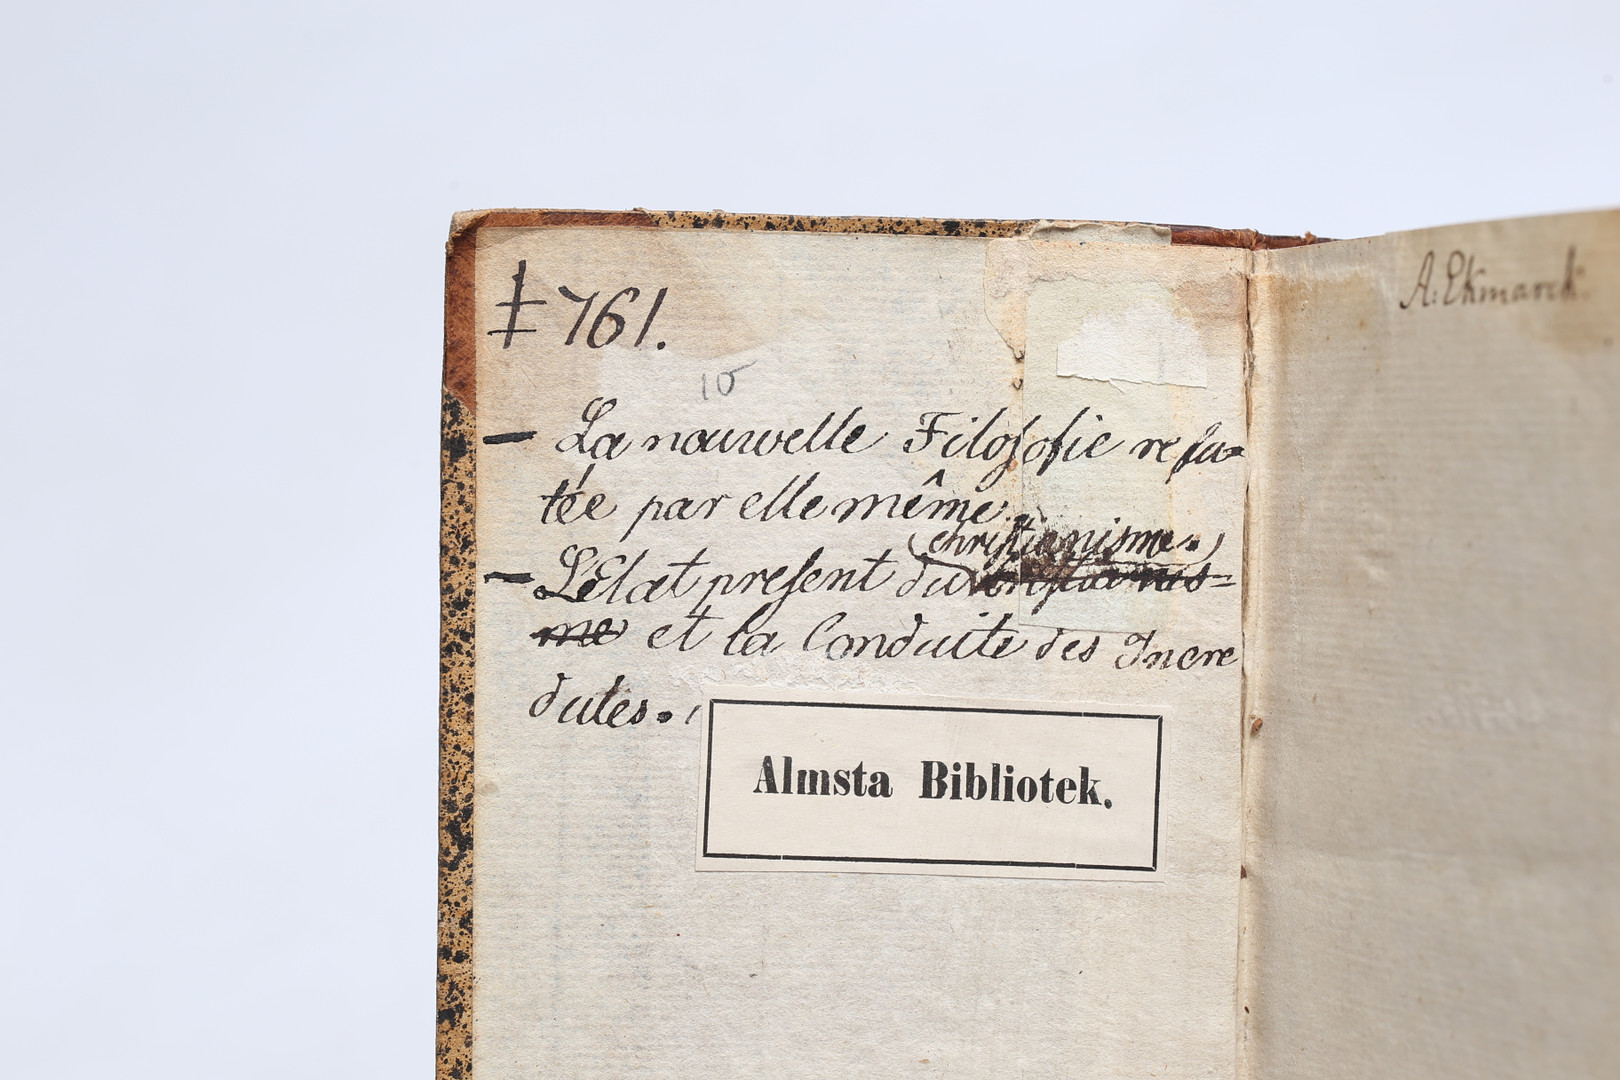 ‡761.
10
– La nouwelle Filosofie refu-
tée par elle même.
(christianisme.)
– L'Etat present du christianis=
me et la Conduite des Incre
dules.
Almsta Bibliotek.
A. Ekmarck